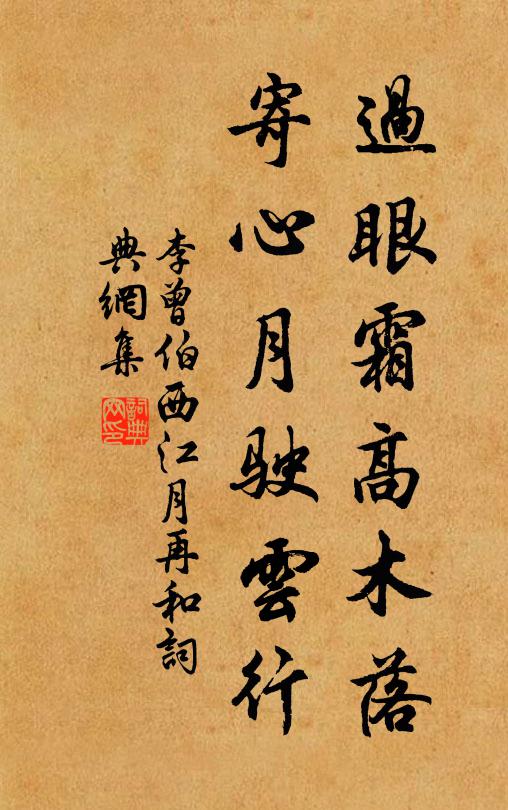 過眼霜高木落
寄心月駛雲行
李曾伯西江月再和詞
典網集
詞典
网印